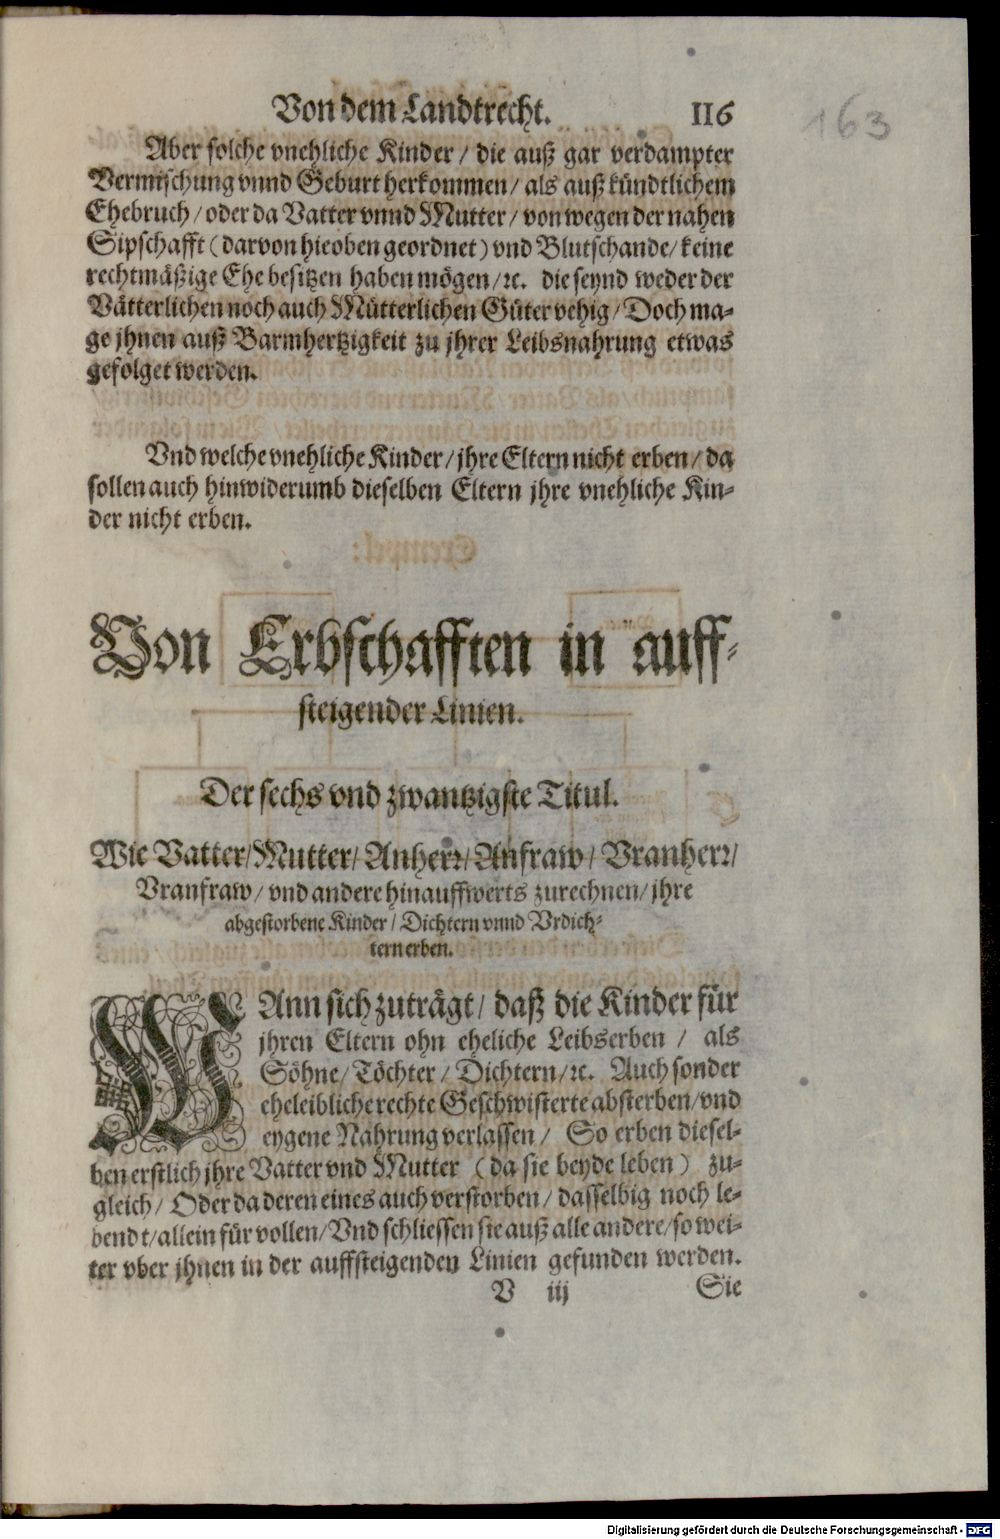 Von dem Landtrecht. 116
163
Aber solche vnehliche Kinder / die auß gar verdampter
Vermischung vnnd Geburt herkommen / als auß kündtlichem
Ehebruch / oder da Vatter vnnd Mutter / von wegen der nahen
Sipschafft (darvon hieoben geordnet) vnd Blutschande / keine
rechtmäßige Ehe besitzen haben mögen / ꝛc. die seynd weder der
Vätterlichen noch auch Mütterlichen Güter vehig / Doch ma-
ge jhnen auß Barmhertzigkeit zu jhrer Leibsnahrung etwas
gefolget werden.
Vnd welche vnehliche Kinder / jhre Eltern nicht erben / da
sollen auch hinwiderumb dieselben Eltern jhre vnehliche Kin-
der nicht erben.
Von Erbschafften in auff-
steigender Linien.
Der sechs vnd zwantzigste Titul.
Wie Vatter / Mutter / Anherꝛ / Anfraw / Vranherꝛ /
Vranfraw / vnd andere hinauffwerts zurechnen / jhre
abgestorbene Kinder / Dichtern vnnd Vrdich-
tern erben.
WAnn sich zuträgt / daß die Kinder für
jhren Eltern ohn eheliche Leibserben / als
Söhne / Töchter / Dichtern / ꝛc. Auch sonder
eheleibliche rechte Geschwisterte absterben / vnd
eygene Nahrung verlassen / So erben diesel-
ben erstlich jhre Vatter vnd Mutter (da sie beyde leben) zu-
gleich / Oder da deren eines auch verstorben / dasselbig noch le-
bendt / allein für vollen / Vnd schliessen sie auß alle andere / so wei-
ter vber jhnen in der auffsteigenden Linien gefunden werden.
V iij Sie
Digitalisierung gefördert durch die Deutsche Forschungsgemeinschaft - DFG